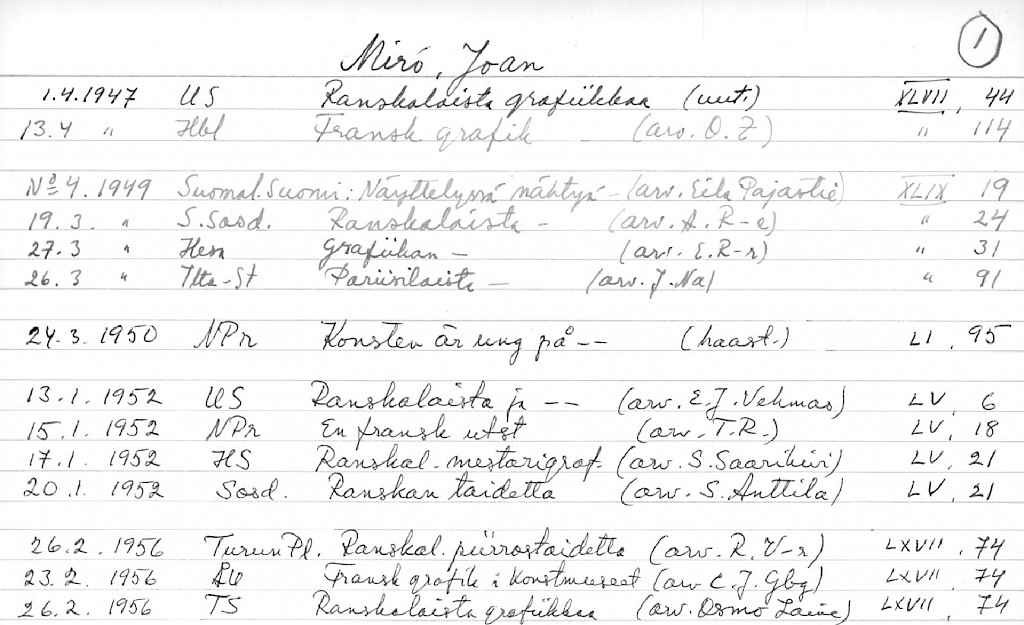 1
Miró, Joan
1.4.1947 US Ranskalaista grafiikkaa (uut.) XLVII, 44
13.4 " Hbl Fransk grafik - (arv. O.Z) " 114
No 4. 1949 Suomal. Suomi: Näyttelyssä nähtyä - (arv. Eila Pajastie) XLIX 19
19.3. " S.Sosd. Ranskalaista - (arv. A.R-e) " 24
27.3 " Hesa Grafiikan - (arv. E.R-r) " 31
26.3 " Ilta-St Pariisilaista - (arv. J.Na) " 91
24.3. 1950 NPr Konsten är ung på -- (haast.) LI, 95
13.1. 1952 US Ranskalaista ja -- (arv. E.J. Vehmas) LV, 6
15.1. 1952 NPr En fransk utst (arv. T.R.) LV, 18
17.1. 1952 HS Ranskal. mestarigraf. (arv. S. Saarikivi) LV, 21
20.1. 1952 Sosd. Ranskan taidetta (arv. S. Anttila) LV, 21
26.2. 1956 Turun Pl. Ranskal. piirrostaidetta (arv. R. V-r) LXVII, 74
23.2. 1956 ÅU Fransk grafik i Konstmuseet (arv C.J. Gbg) LXVII, 74
26.2. 1956 TS Ranskalaista grafiikkaa (arv. Osmo Laine) LXVII, 74